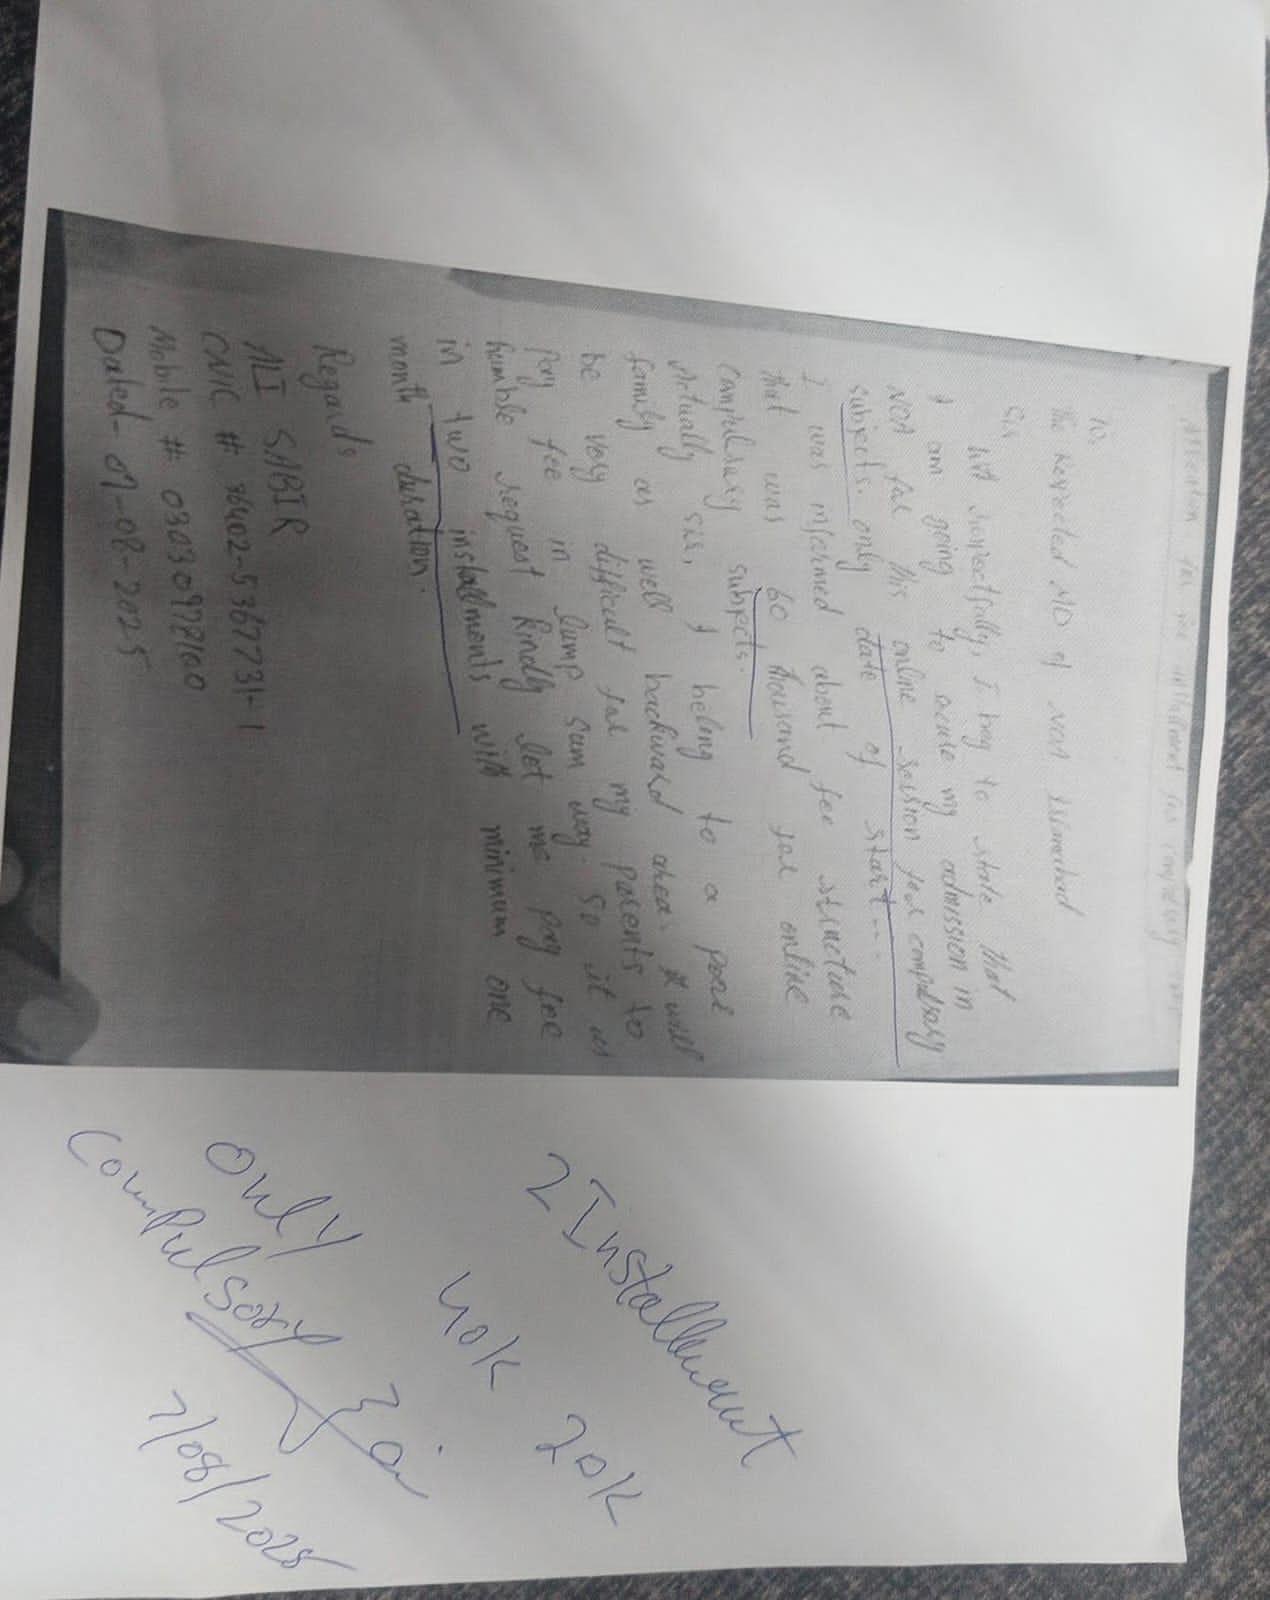 Attention for fee installment for compulsory
To,
The Respected MD of NOA Islamabad
Sir
Most respectfully, I beg to state that
I am going to my admission in
NOA for this online session for compulsary
subjects. only date of start...
I was informed about fee structure
that was 60 thousand for online
Compulsary subjects.
Actually sir, I belong to a poor
family as well backward area. It will
be very difficult for my parents to
pay fee in lump sum way. So it is
humble request kindly let me pay fee
in two installments with minimum one
month duration.
Regards
ALI SABIR
CNIC # 36402-5367731-1
Mobile # 03030978160
Dated- 07-08-2025
2 Installment
40K 20K
only
Compulsory
7/08/2025